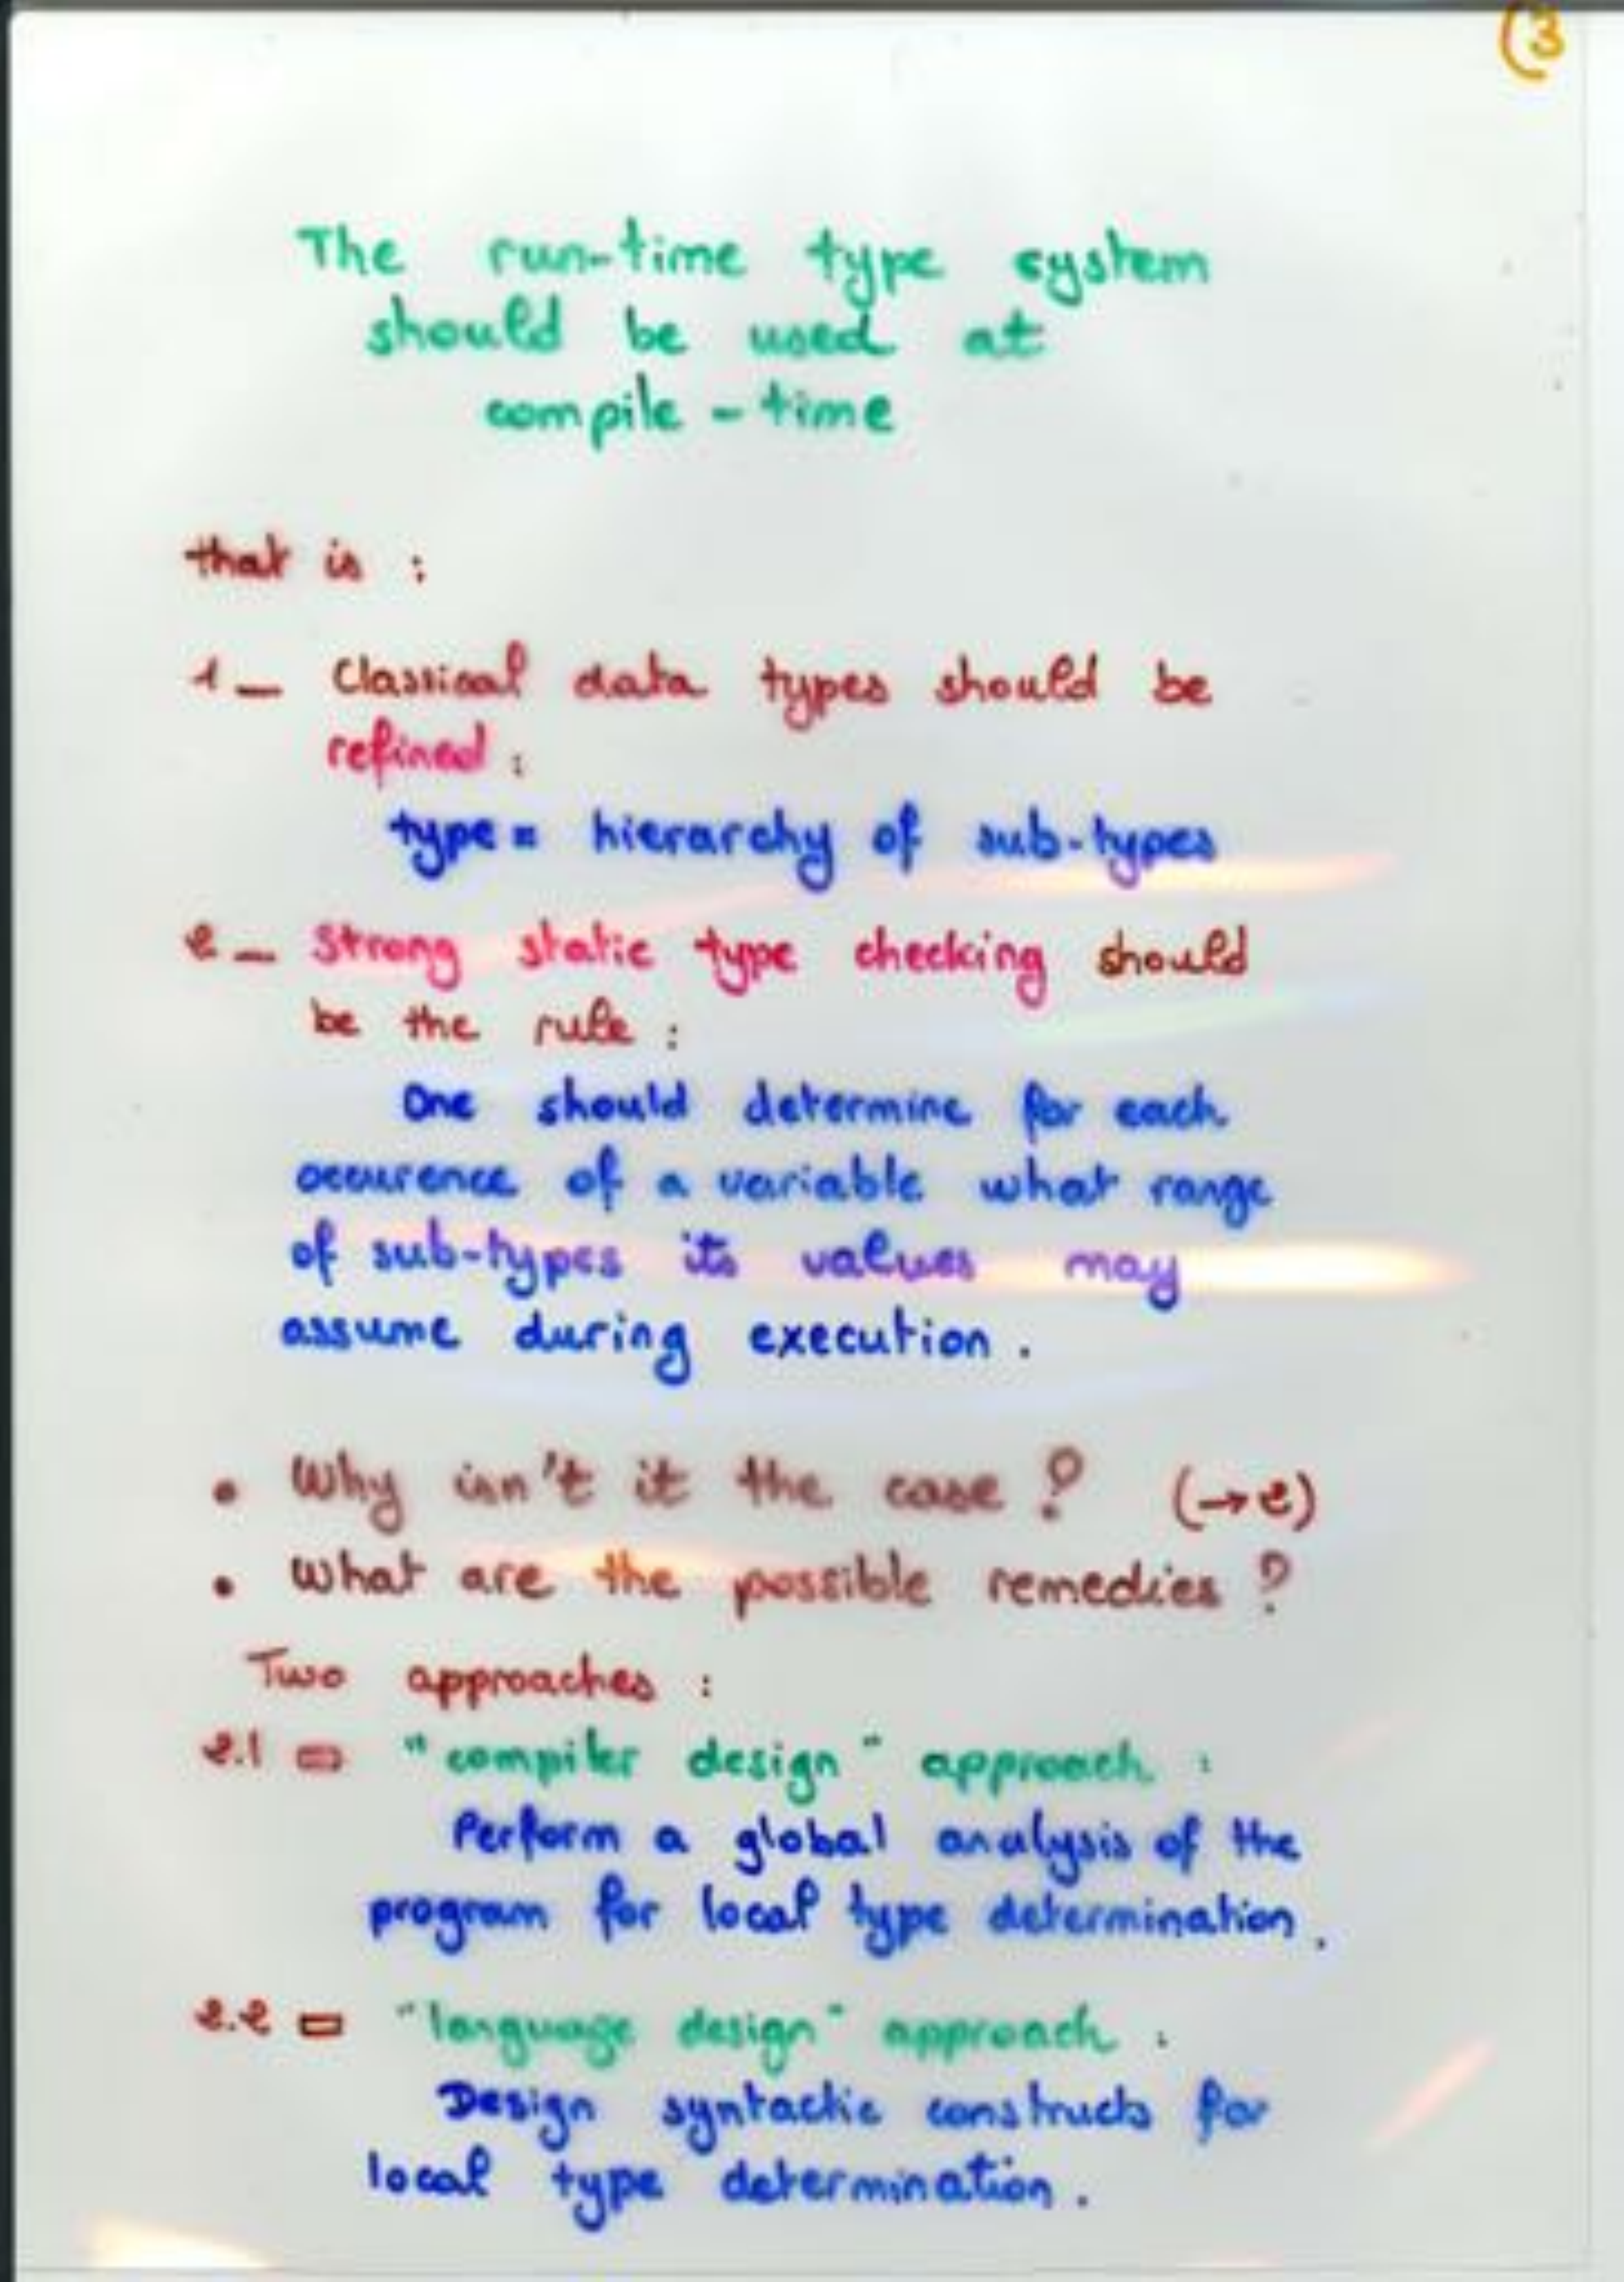 (3
The run-time type system
should be used at
compile-time
that is :
1_ Classical data types should be
refined :
type = hierarchy of sub-types
2_ Strong static type checking should
be the rule :
One should determine for each
occurence of a variable what range
of sub-types its values may
assume during execution.
• Why isn't it the case ? (→2)
• What are the possible remedies ?
Two approaches :
2.1 "compiler design" approach :
Perform a global analysis of the
program for local type determination.
2.2 "language design" approach :
Design syntactic constructs for
local type determination.